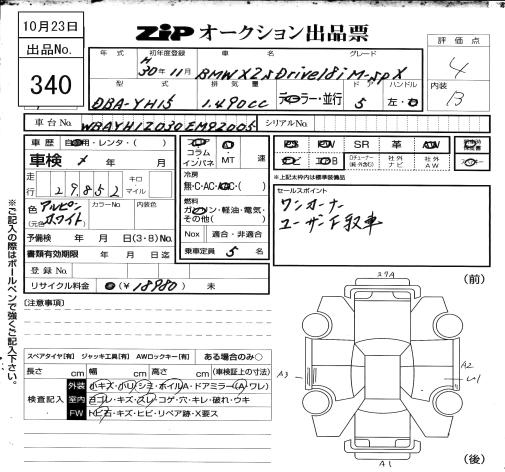 10月23日
出品No.
340
ZIP オークション出品票
評価点
4
内装
B
年式 初年度登録 車名 グレード
H 30年11月 BMW X2 sDrive18i M-spX
型式 排気量 ドア ハンドル
DBA-YH15 1.490cc ディーラー・並行 5 左・
車台No. WBAYH1Z030EM92005 シリアルNo.
車歴 自家用・レンタ・( )
車検 年 月
走行 29,852 キロ マイル
色 アルピンホワイト
(元色 )
カラーNo
内装色
予備検 年 月 日(3・8)No.
書類有効期限 年 月 日迄
登録No.
リサイクル料金 (¥18980) 未
コラム
インパネ
MT
速
冷房
無・C・AC・ C・( )
燃料
ガソリン・軽油・電気・
その他( )
Nox 適合・非適合
乗車定員 5 名
SR 革
社外ナビ
社外AW
※上記太枠内は標準装備品
セールスポイント
ワンオーナー
ユーザー下取車
※ご記入の際はボールペンで強くご記入下さい。
[注意事項]
スペアタイヤ[有] ジャッキ工具[有] AWロックキー[有] ある場合のみ○
長さ cm 幅 cm 高さ cm (車検証上の寸法)
検査記入
外装 小キズ・小ハシミ・ホイルA・ドアミラー(A・ワレ)
室内 ヨゴレ・キズ・スレ・コゲ・穴・キレ・破れ・ウキ
FW トビ石・キズ・ヒビ・リペア跡・X要ス
(前)
A3
A2
A1
(後)